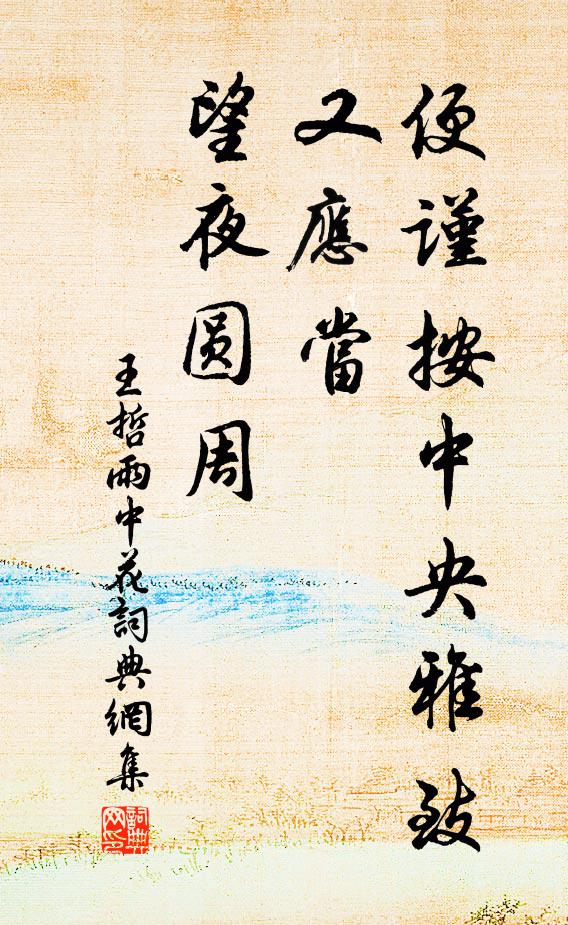 便謹按中央雅致
又應當
望夜圓周
王哲雨中花詞典網集
詞典网印